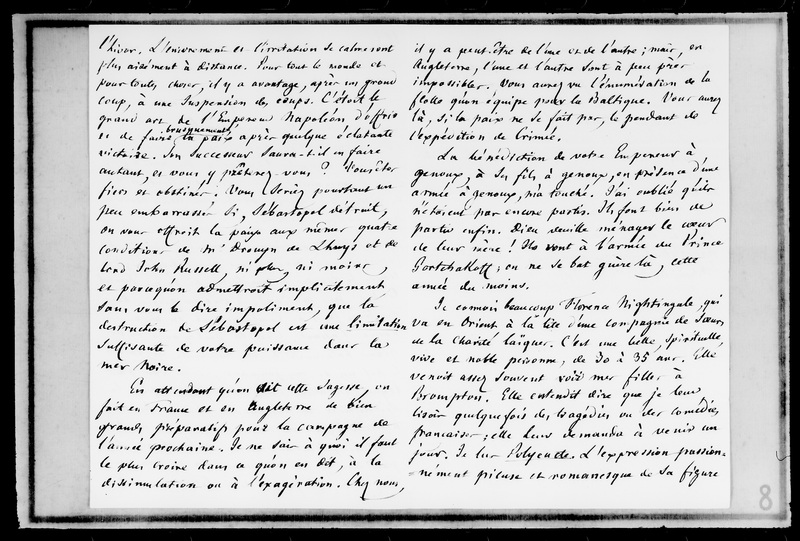 l'hiver. L'enivrement et l'irritation se calmeront
plus aisément à distance. Pour tout le monde et
pour toutes choses, il y a avantage, après un grand
coup, à une suspension des coups. C'était le
grand art de l'Empereur Napoléon d'offrir
et de faire brusquement la paix après quelque éclatante
victoire. Son successeur saura-t-il en faire
autant, et vous y prêterez vous ? Vous êtes
fiers et obstinés. Vous seriez pourtant un
peu embarrassés si, Sébastopol détruit,
on vous offroit la paix aux mêmes quatre
conditions de Mr Drouyn de Lhuys et de
lord John Russell, ni plus, ni moins,
et parcequ'on admettroit implicitement
sans vous le dire impoliment, que la
destruction de Sébastopol est une limitation
suffisante de votre puissance dans la
mer Noire.
En attendant qu'on ait cette sagesse, on
fait en France et en Angleterre de bien
grands préparatifs pour la campagne de
l'année prochaine. Je ne sais à quoi il faut
le plus croire dans ce qu'on en dit, à la
dissimulation ou à l'exagération. Chez nous,
il y a peut-être de l'une et de l'autre ; mais, en
Angleterre, l'une et l'autre sont à peu près
impossibles. Vous aurez vu l'énumération de la
flotte qu'on équipe pour la Baltique. Vous aurez
là, si la paix ne se fait pas, le pendant de
l'expédition de Crimée.
La bénédiction de votre Empereur à
genoux, à ses fils à genoux, en présence d'une
armée à genoux, m'a touché. J'ai oublié qu'ils
n'étoient pas encore partis. Ils font bien de
partir enfin. Dieu veuille ménager le cœur
de leur mère ! Ils vont à l'armée du Prince
Gortchakoff ; on ne se bat guère là, cette
année du moins.
Je connois beaucoup Florence Nightingale, qui
va en Orient à la tête d'une compagnie de Sœurs
de la Charité laïques. C'est une belle, spirituelle,
vive et noble personne, de 30 à 35 ans. Elle
venoit assez souvent voir mes filles à
Brompton. Elle entendit dire que je leur
lisois quelquefois des tragédies ou des comédies
françaises ; elle leur demanda à venir un
jour. Je lus Polyeucte. L'expression passion=
=nément pieuse et romanesque de sa figure
8